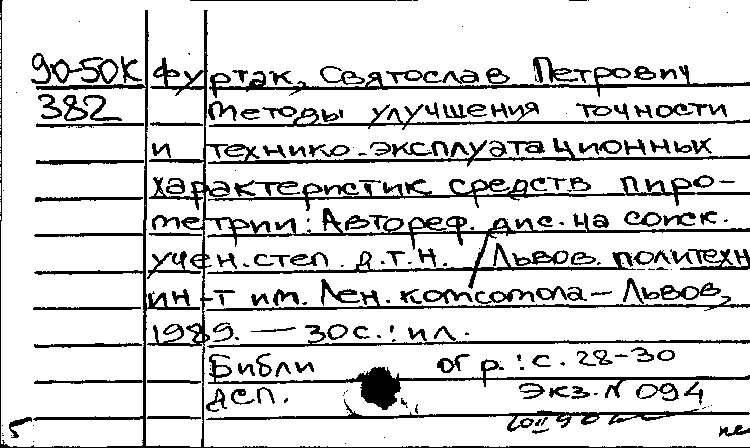 90-50К Фуртак, Святослав Петрович
382 Методы улучшения точности
и технико-эксплуатационных
характеристик средств пиро-
метрии: Автореф. дис. на соиск.
учен. степ. д.т.н. /Львов. политехн
ин-т им. Лен. комсомола - Львов,
1989. — 30с.: ил.
Библиогр.: с. 28-30
ДСП. Экз. N 094
5 не